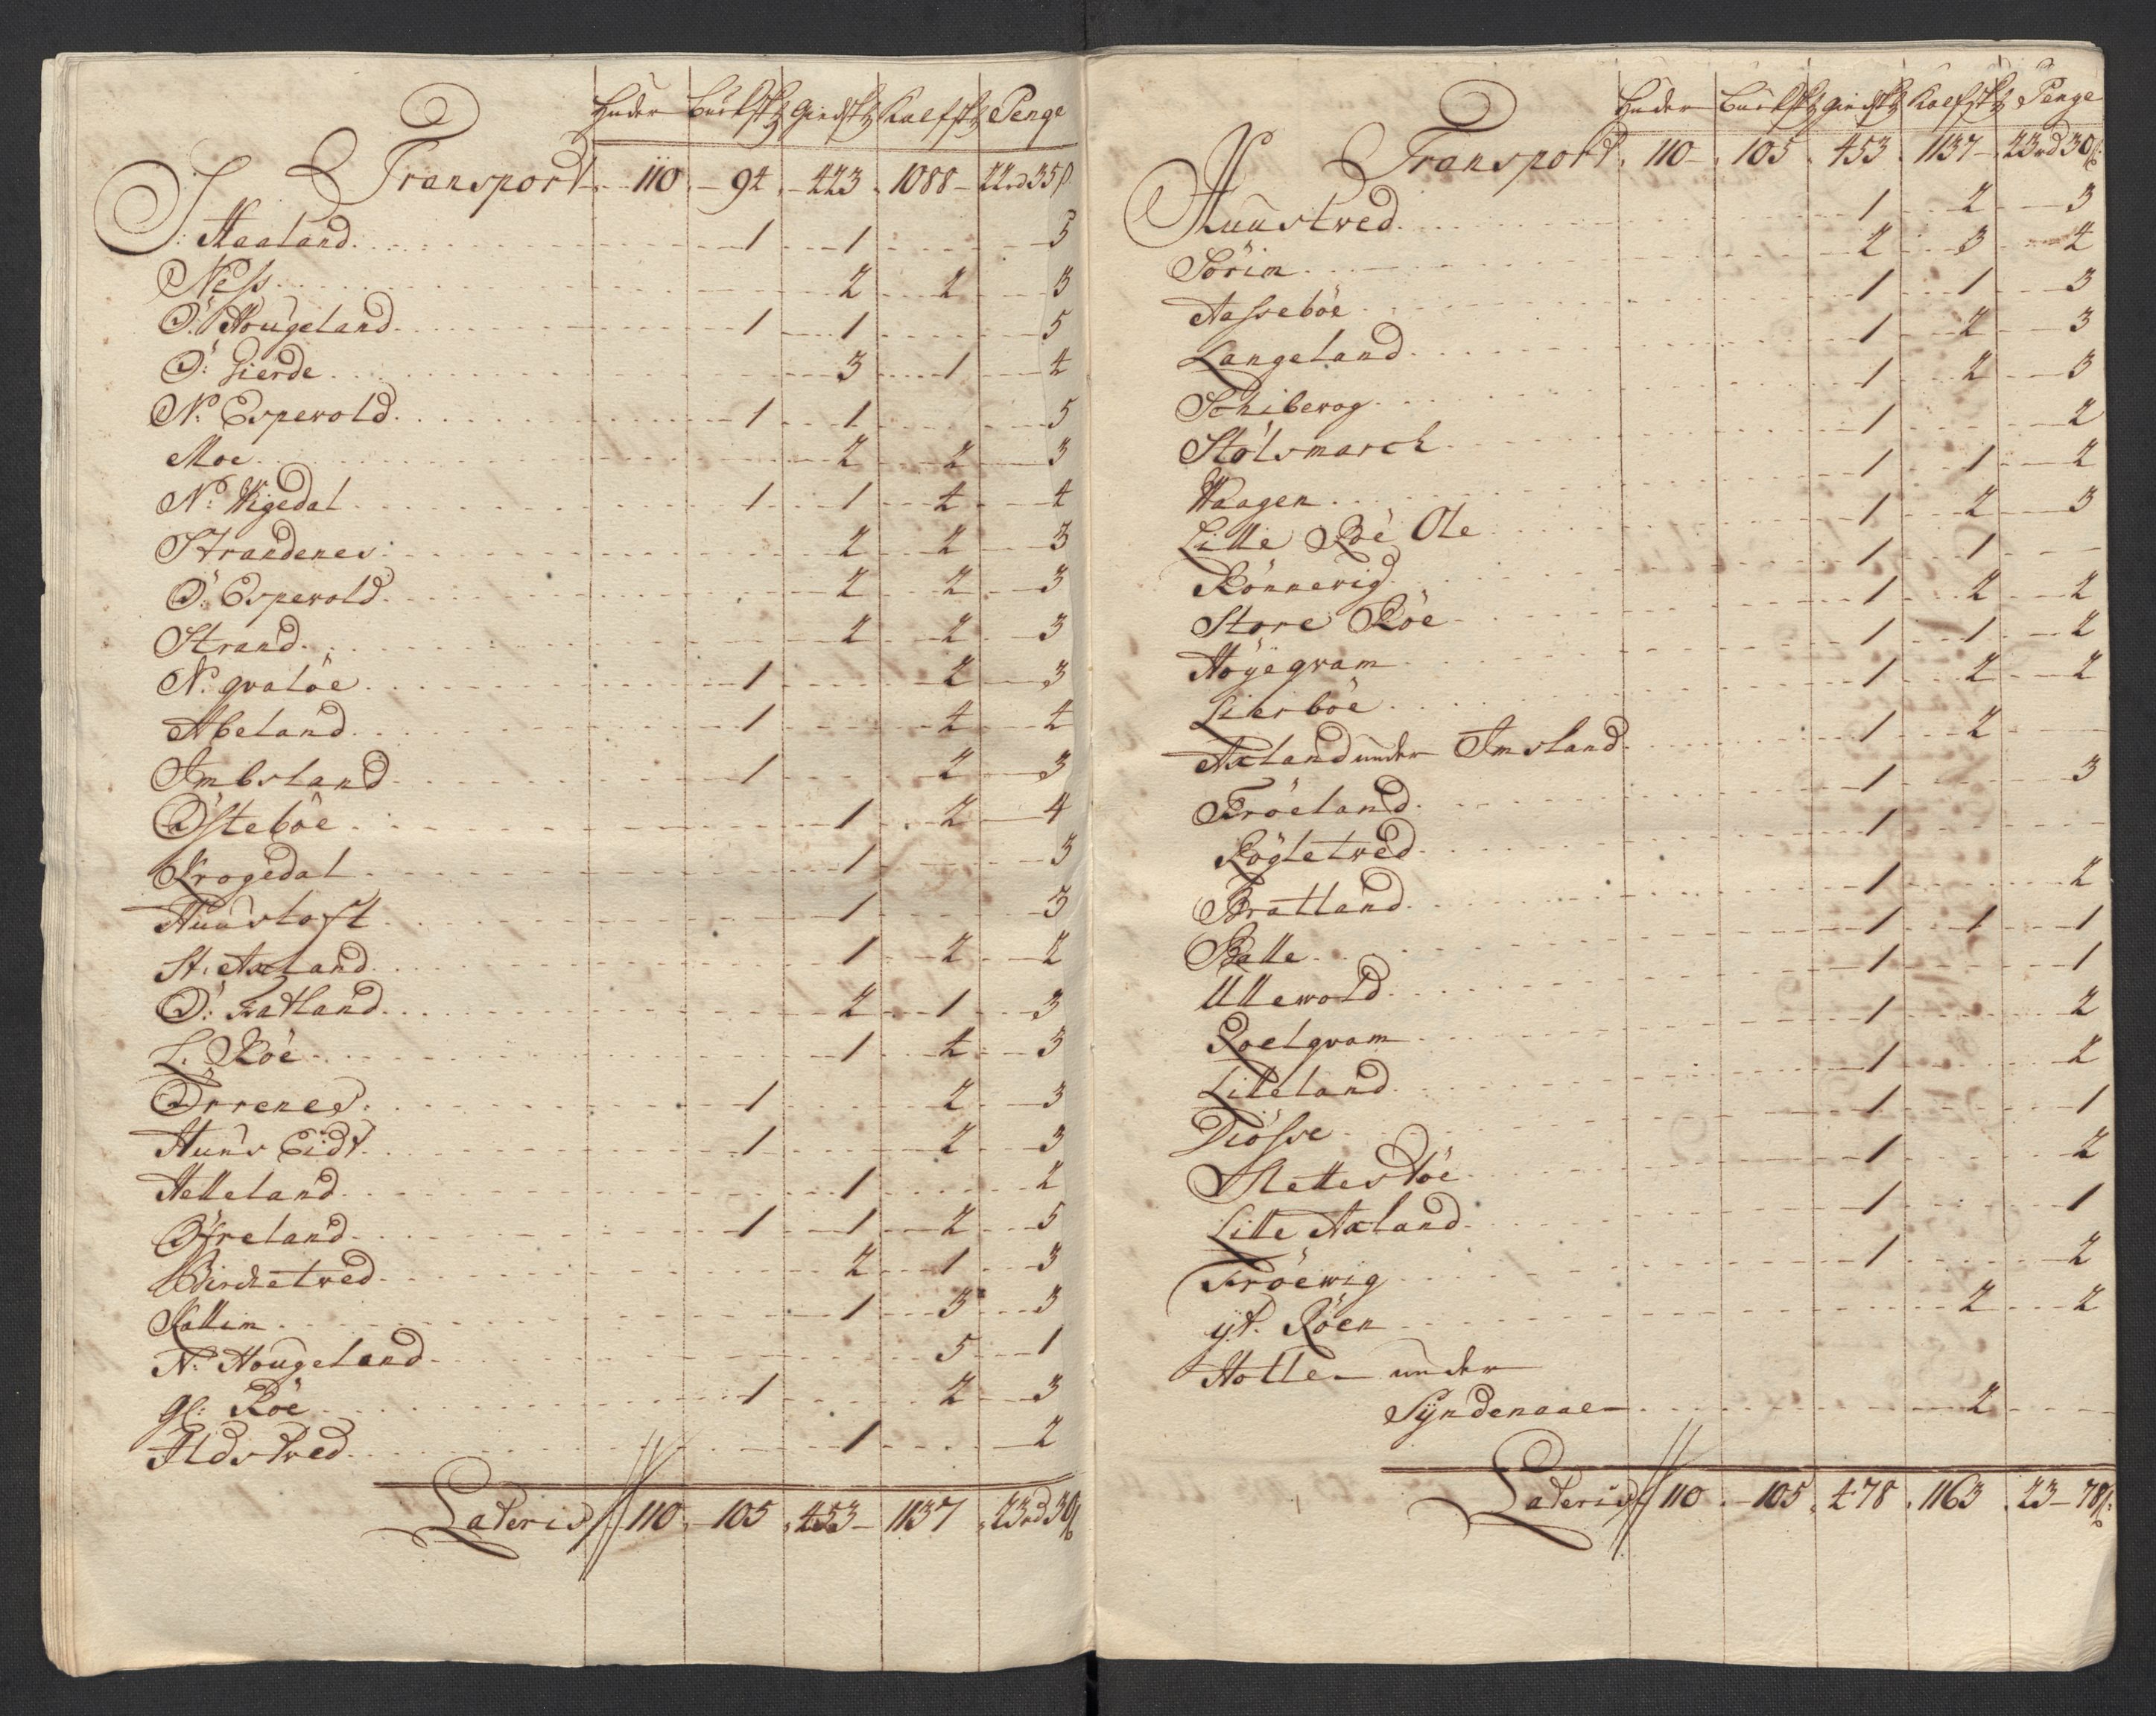 Huder Buckſk: Giedſk: Kalfſk: Penge
Transport 110 94 423 1088 22rd 35ß
I: Haaland 1 1 5
Ness 2 2 3
Ö: Hougeland 1 1 5
Ö: Gierde 3 1 4
N: Espevold 1 1 5
Moe 2 2 3
N: Wigedal 1 1 4 4
Strandenes 2 2 3
Ö: Espevold 2 2 3
Strand 2 2 3
N: qvalöe 1 2 3
Abeland 1 4 4
Imbsland 1 2 3
Östeböe 1 2 4
Krogedal 1 3
Huustoft 1 3
St: Axland 1 2 2
Ö: Fatland 2 1 3
L: Röe 1 4 3
Örrenes 1 2 3
Huns Eidt 1 2 3
Helleland 1 2
Öfreland 1 1 2 5
Birchetwed 2 1 3
Kallim 1 3 3
N: Hougeland 5 1
gl: Röe 1 2 3
Ildstved 1 2
Lateris 110 105 453 1137 23rd 30ß
Huder Buckſk: giedſk: Kalfſk: Penge
Transport 110 105 453 1137 23rd 30ß:
Huustwed 1 2 3
Sörim 2 3 4
Aasseböe 1 1 3
Langeland 1 2 3
Schibevog 1 2 3
Stölsmarch 1 2
Waagen 1 1 2
Lille Röe Ole 1 2 3
Rönnevig 1 1
Store Röe 1 2 2
Höÿeqvam 1 1 2
Lierböe 1 2 2
Axland under Imsland 1 2
Fröeland 1 3
Rögletwed 1
Bratland 1 2
Balle 1 1 1
Ullewold 1 1
Roelqvam 1 2
Lilleland 1 2
Diösse 1 1
Slettestöe 1 2
Lille Axland 1 1
Fröewig 1 2
yt. Röen 2 2
Holle under
Syndenaae 2
Lateris 110 105 478 1163 23 - 78ß: